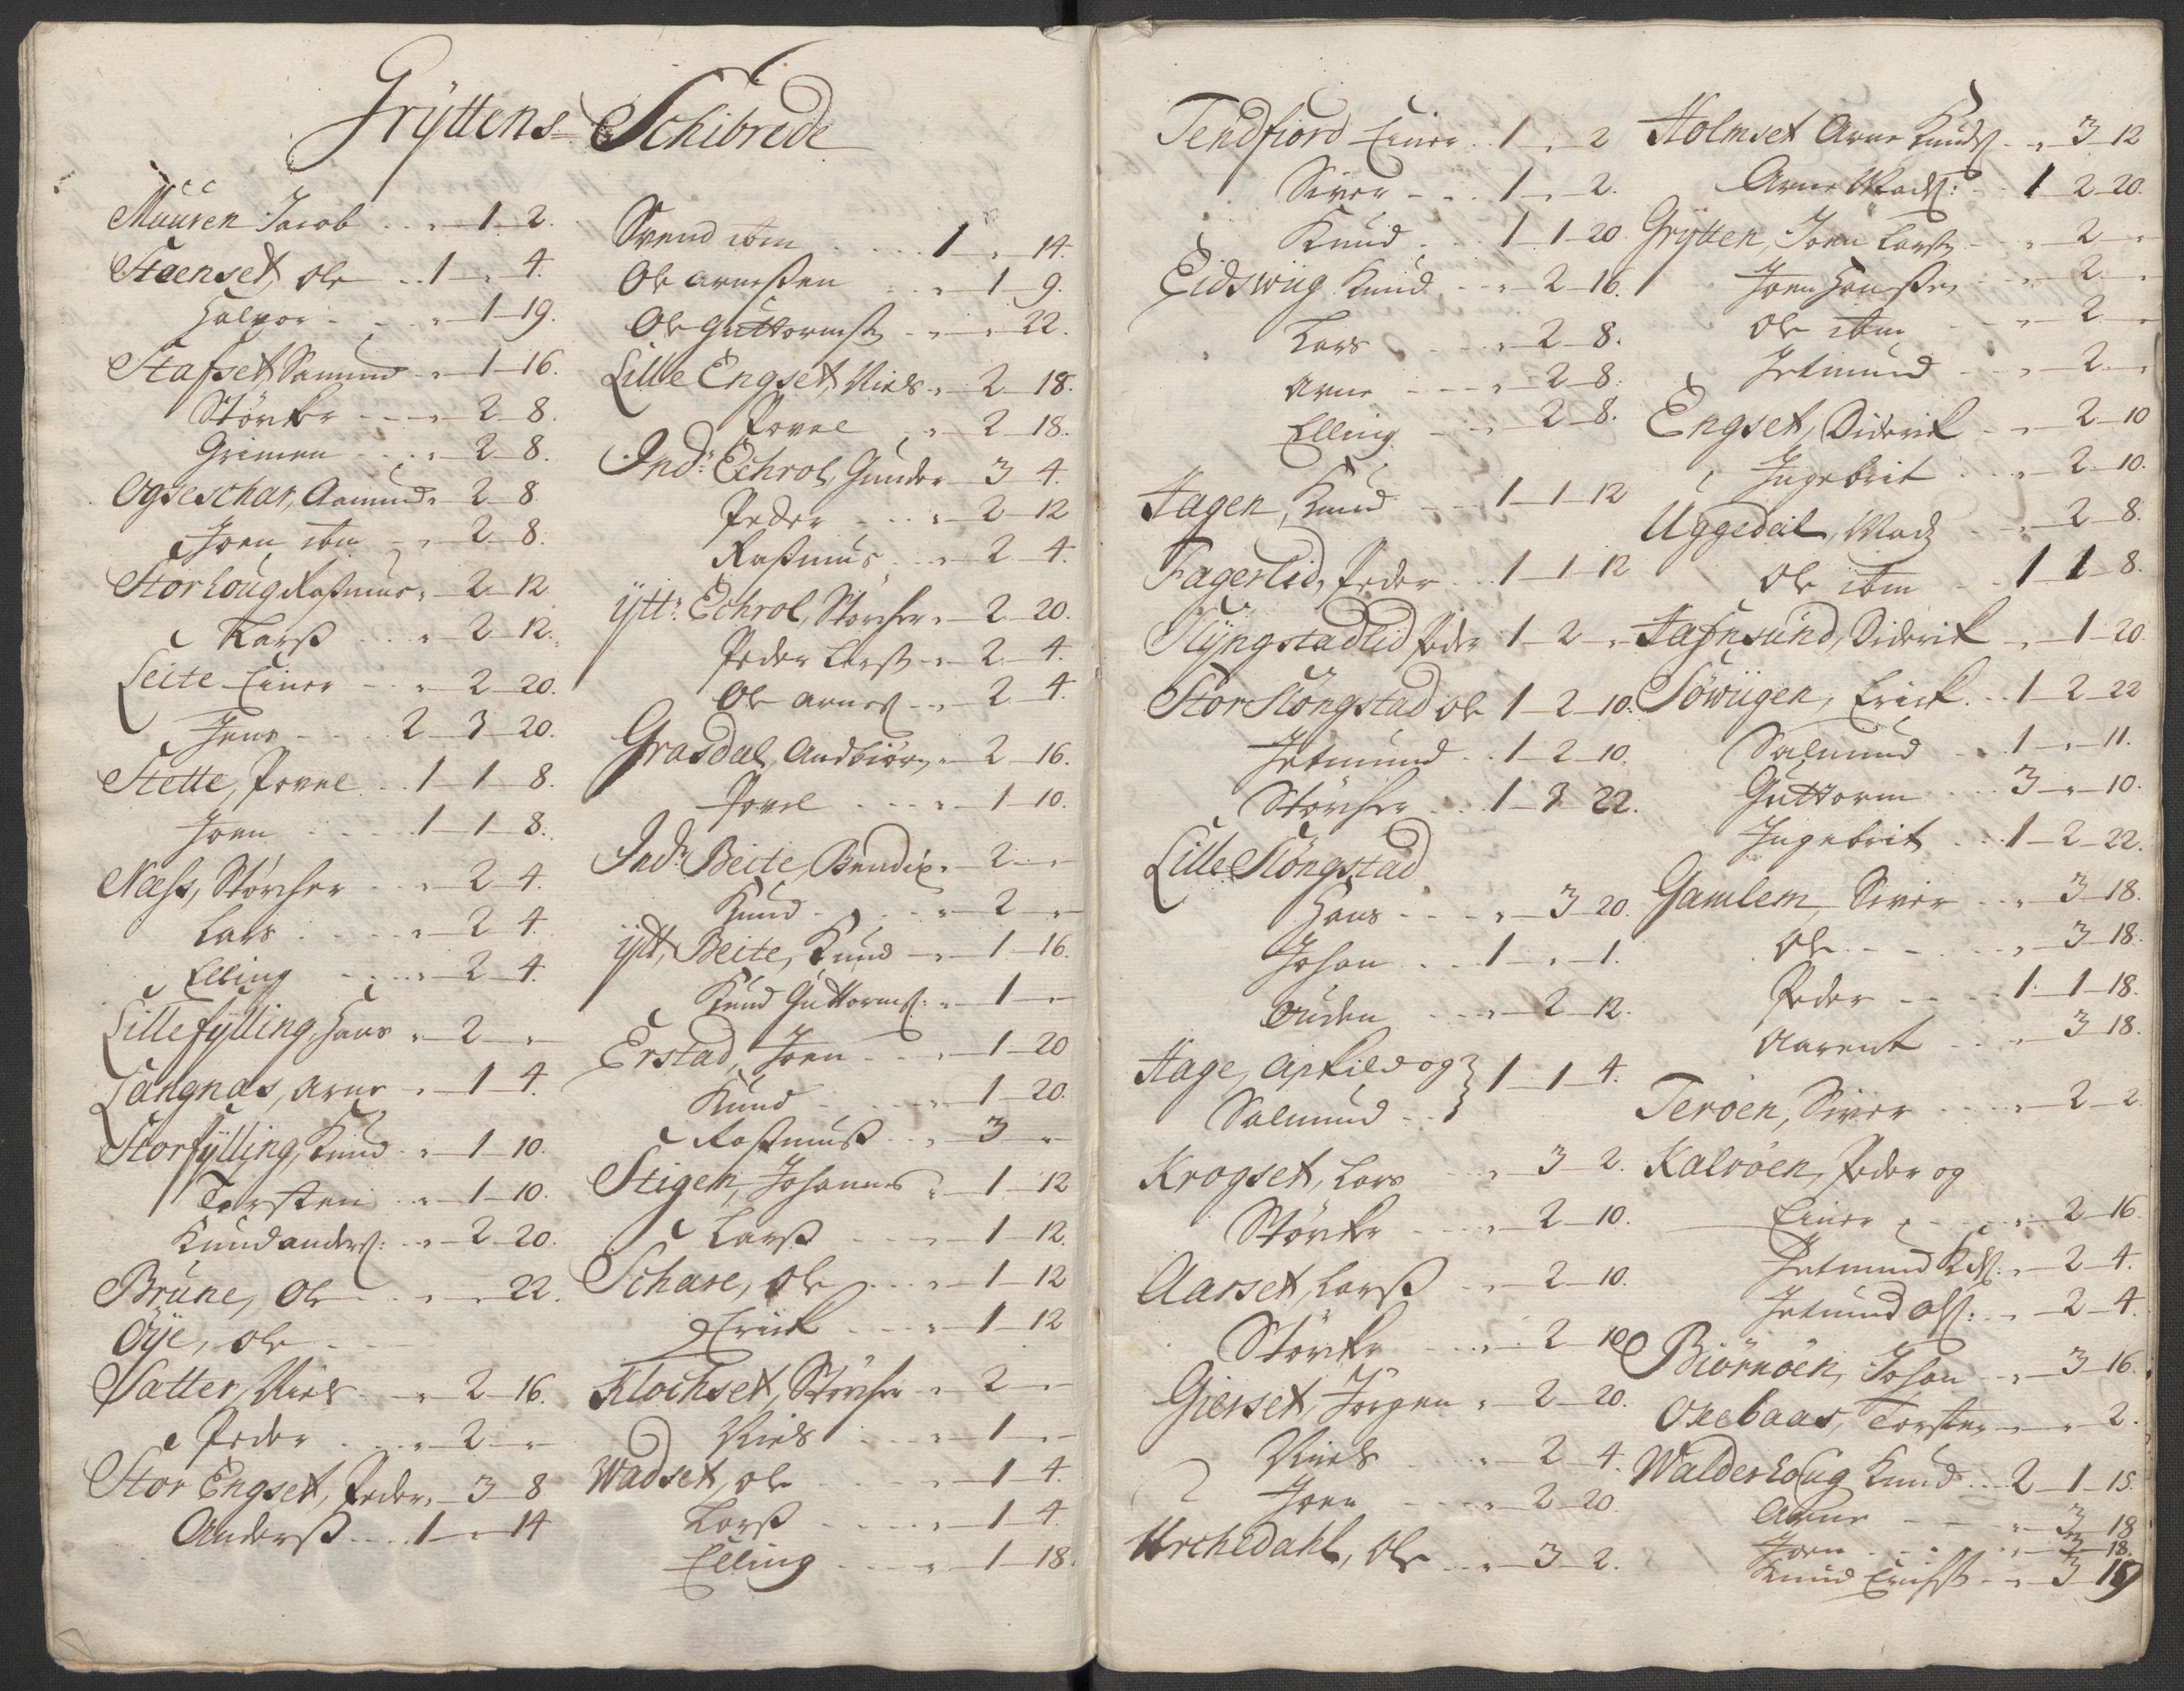 Gryttens Schibrede
Muuren Jacob . . „ 1 2.
Steenset, Ole . . 1 „ 4.
Halvor . . „ 1 19.
Stafset, Samund „ 1 16.
Störker . . „ 2 8.
Grimen . . „ 2 8.
Ogseschar, Aamund „ 2 8
Joen ibm „ 2 8.
Storhoug Rasmus „ 2 12
Larss . . „ 2 12.
Leite Einer . „ 2 20.
Jens . . 2 3 20.
Stette, Povel . . 1 1 8.
Joen . . 1 1 8.
Næss, Störcher . . „ 2 4.
Lars . . „ 2 4.
Elling . . „ 2 4.
Lillefylling, Hans „ 2 „
Langnæs, Arne „ 1 4.
Storfylling, Knud „ 1 10.
Torsten . . „ 1 10.
Knud Anders: „ 2 20.
Brune, Ole . . „ „ 22.
Öye, Ole . .
Sætter, Niels „ 2 16.
Peder . . „ 2 „
Stor Engset, Peder „ 3 8
Anderss . . 1 „ 14
Svend ibm . . 1 „ 14.
Ole Arnessen . . „ 1 9.
Ole Guttormss . . „ „ 22.
Lille Engset, Niels „ 2 18.
Povel „ 2 18.
Ind: Echrol, Gunder 3 4.
Peder . . „ 2 12
Rasmus . . „ 2 4.
Ytt: Echrol, Störcher „ 2 20.
Peder Larss „ 2 4.
Ole Arness „ 2 4.
Grasdal, Andbiörn „ 2 16.
Povel . . „ 1 10.
Ind: Beite, Bendix „ 2 „
Knud . . „ 2 „
Ytt, Beite, Knud „ 1 16.
Knud Guttorms: „ 1 „
Erstad, Joen . . „ 1 20
Knud . . „ 1 20.
Rasmuss . . „ 3 „
Stigen, Johannes „ 1 12
Larss . . „ 1 12.
Schare, Ole . . „ 1 12
Erick . . „ 1 12
Klochset, Störcher „ 2 „
Niels . . „ 1 „
Wadset, Ole . . „ 1 4.
Larss . . „ 1 4.
Elling . . „ 1 18.
Tendfiord Einer . . 1 „ 2
Siver . . 1 „ 2.
Knud . . 1 1 20.
Eidswiig Knud . . „ 2 16.
Lars . . „ 2 8.
Arne . . „ 2 8.
Elling . . „ 2 8.
Hagen, Knud . . 1 1 12
Fagerlid, Peder . . 1 1 12
Slyngstadlid Peder 1 2 „
Stor Slöngstad Ole 1 2 10.
Jetmund . . 1 2 10.
Störcher . . 1 3 22.
Lille Slöngstad
Hans . . „ 3 20.
Johan . . 1 „ 1.
Auden . . „ 2 12.
Hage, Apkild og } 1 1 4.
Salmund . .
Krogset, Lars . . „ 3 2.
Störker . . „ 2 10.
Aarset, Larss . . „ 2 10.
Störker . . „ 2 10
Gierset, Jörgen „ 2 20.
Niels . . „ 2 4.
Joen . . „ 2 20.
Urchedahl, Ole . . „ 3 2.
Holmset Arne Knuds . „ 3 12
Arne Mads: . . 1 2 20.
Grytten, Joen Larss . . „ 2 „
Joen Hanssen . . „ 2 „
Ole ibm . . „ 2 „
Jetmund . . „ 2 „
Engset, Diderik . . „ 2 10
Ingebrit . . „ 2 10.
Uggedal, Mads . . „ 2 8.
Ole ibm . . 1 1 8.
Hafnsund, Diderik „ 1 20.
Söwiigen, Erick . . 1 2 22
Salmund . . 1 „ 11.
Guttorm . . 3 „ 10.
Ingebrit . . 1 2 22.
Gamlem, Siver . . „ 3 18.
Ole . . „ 3 18.
Peder . . 1 1 18.
Aarent . . „ 3 18.
Teröen, Siver . . „ 2 2
Kalvöen, Peder og
Einer . . „ 2 16.
Jetmund „ 2 4.
Jetmund Ols: „ 2 4.
Biörnöen, Johan . . „ 3 16.
Onebaas, Torsten „ 2.
Walderhoug Knud . . 2 1 15.
Arne . . „ 3 18
Joen . . „ 3 18.
Knud Erichss . „ 3 19